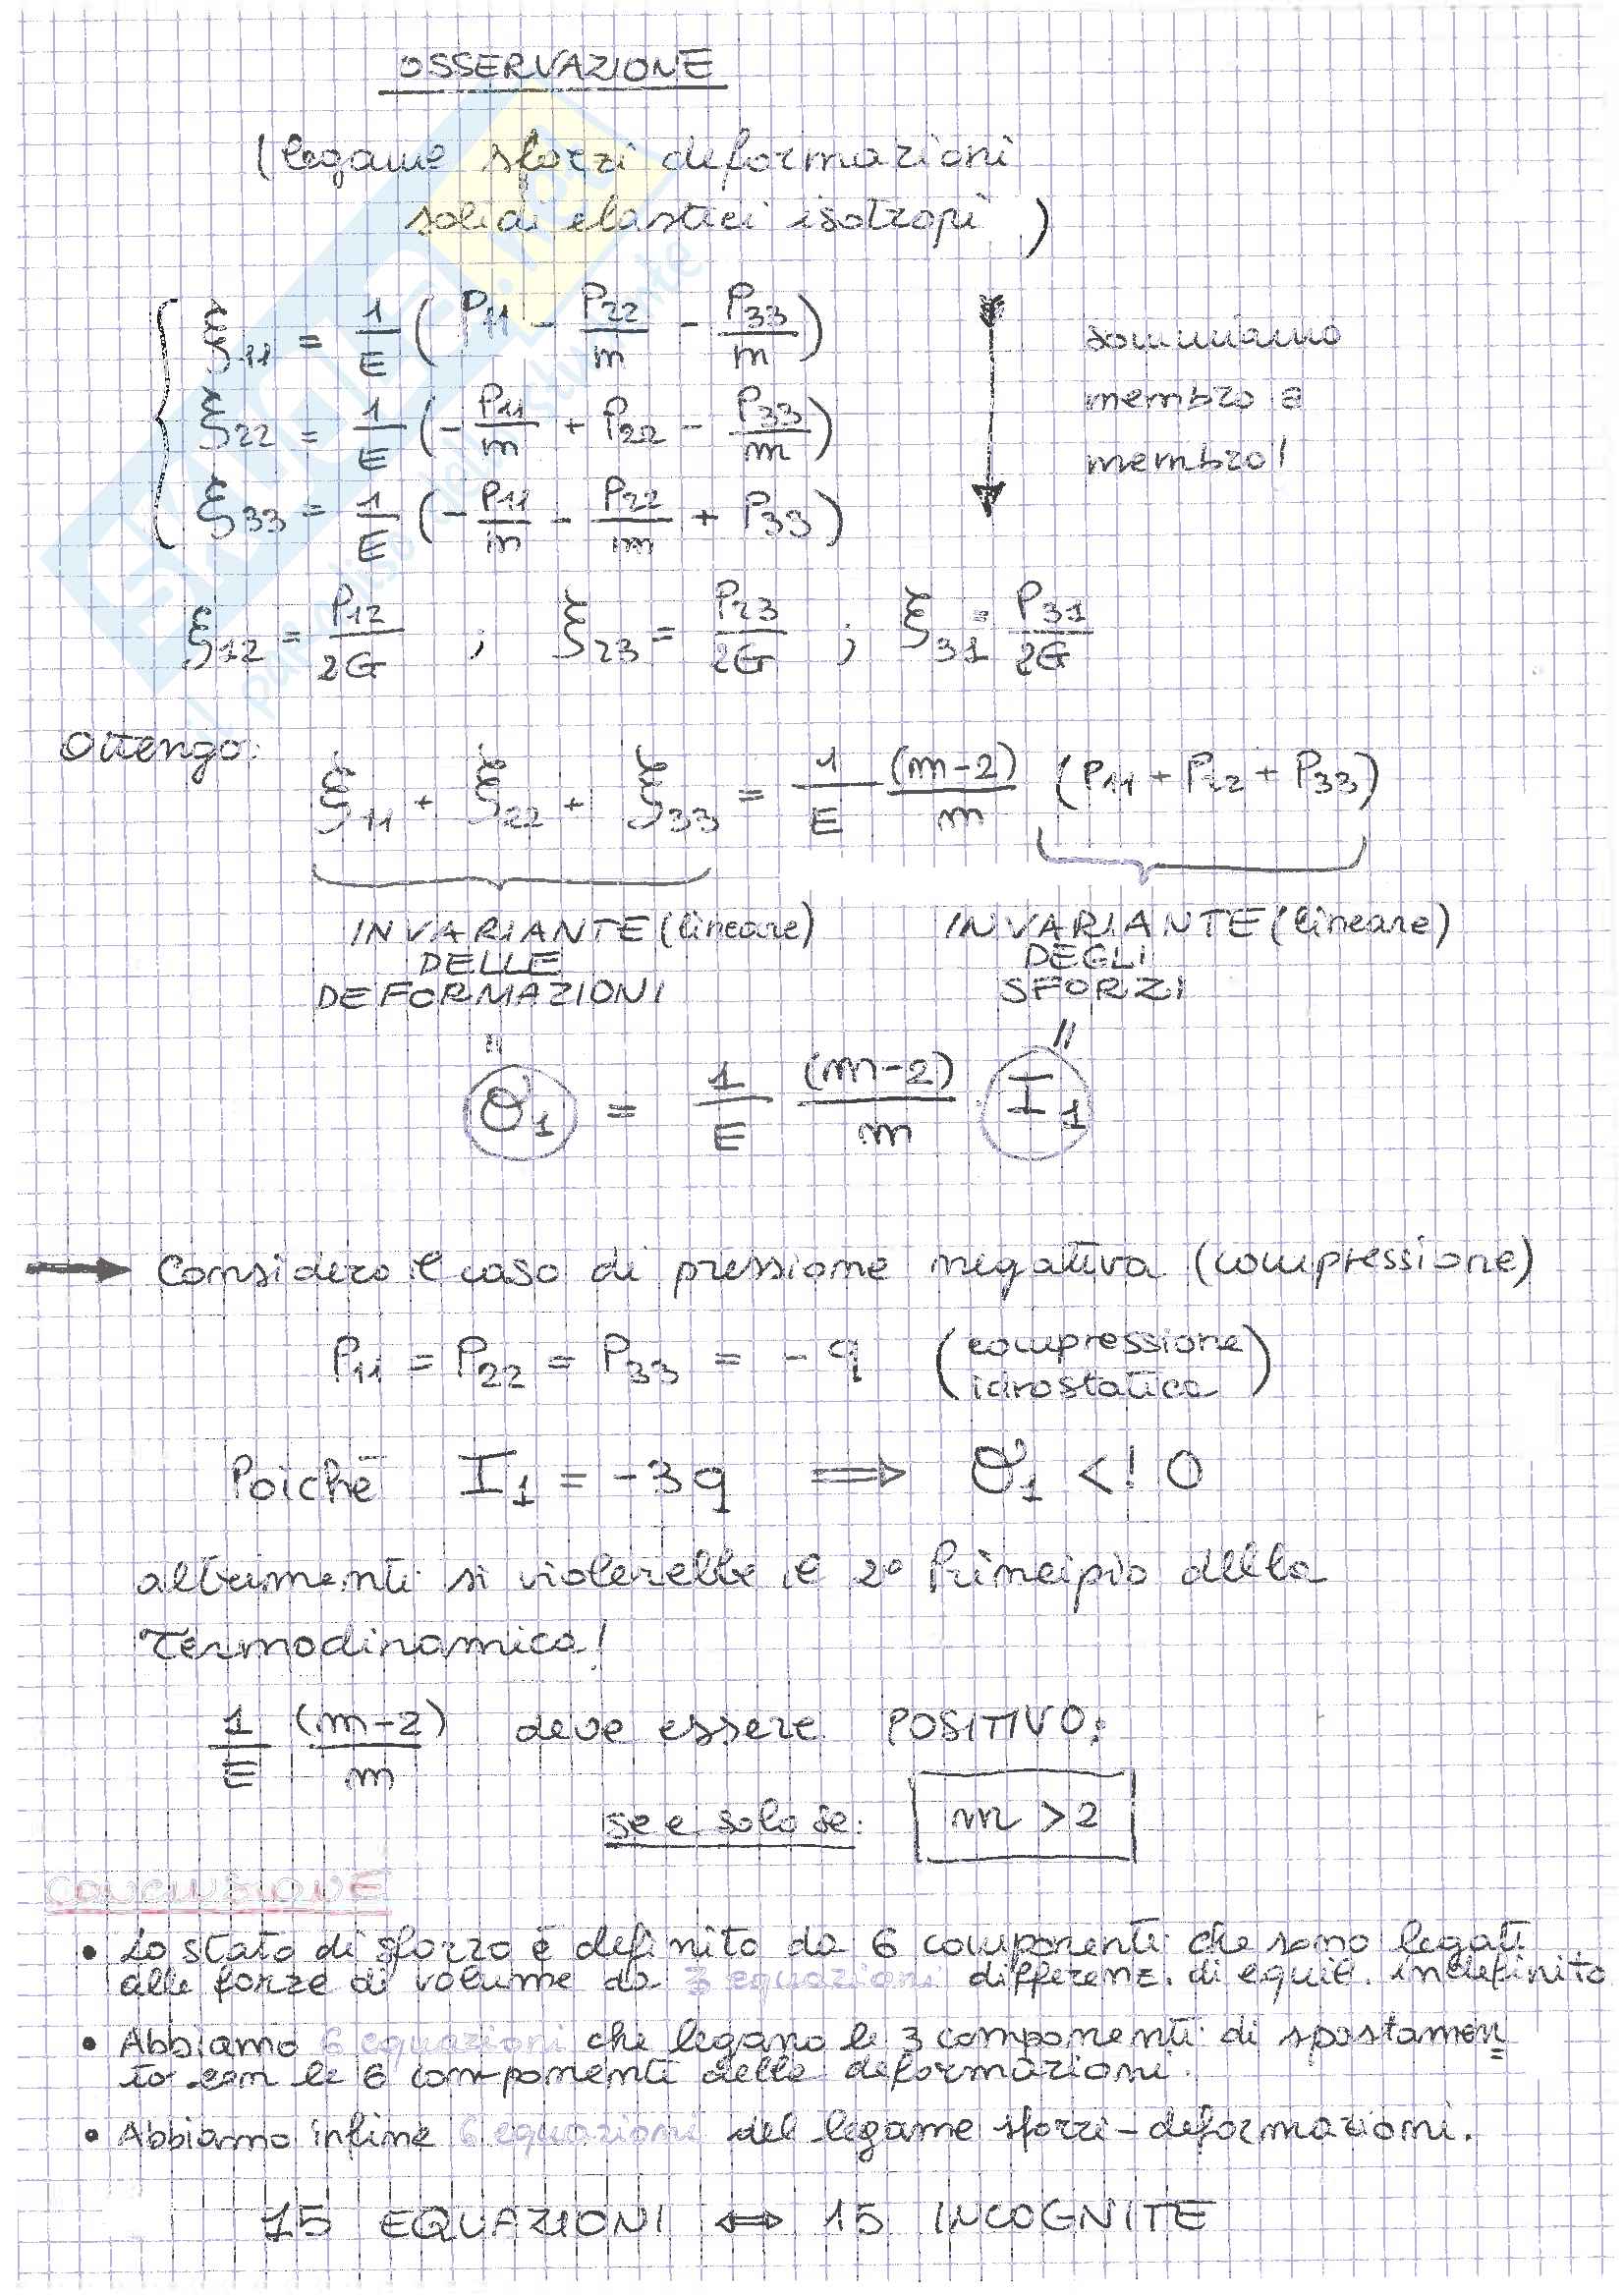 OSSERVAZIONE
(legame sforzi deformazioni
solidi elastici isotropi)
ξ11 = 1/E (P11 - P22/m - P33/m)
sommiamo
ξ22 = 1/E (-P11/m + P22 - P33/m)
membro a
ξ33 = 1/E (-P11/m - P22/m + P33)
membro!
ξ12 = P12/2G ; ξ23 = P23/2G ; ξ31 = P31/2G
Ottengo:
ξ11 + ξ22 + ξ33 = 1/E (m-2)/m (P11 + P22 + P33)
INVARIANTE (lineare) INVARIANTE (lineare)
DELLE DEGLI
DEFORMAZIONI SFORZI
" "
ϑ1 = 1/E (m-2)/m · I1
→ Considero il caso di pressione negativa (compressione)
P11 = P22 = P33 = -q (compressione
idrostatica)
Poichè I1 = -3q ⟹ ϑ1 <! 0
altrimenti si violerebbe il 2° Principio della
Termodinamica!
1/E (m-2)/m deve essere POSITIVO:
se e solo se: m > 2
CONCLUSIONE
• Lo stato di sforzo è definito da 6 componenti che sono legati
alle forze di volume da 3 equazioni differenz. di equil. indefinito
• Abbiamo 6 equazioni che legano le 3 componenti di spostamen=
to con le 6 componenti delle deformazioni.
• Abbiamo infine 6 equazioni del legame sforzi-deformazioni.
15 EQUAZIONI ⟺ 15 INCOGNITE